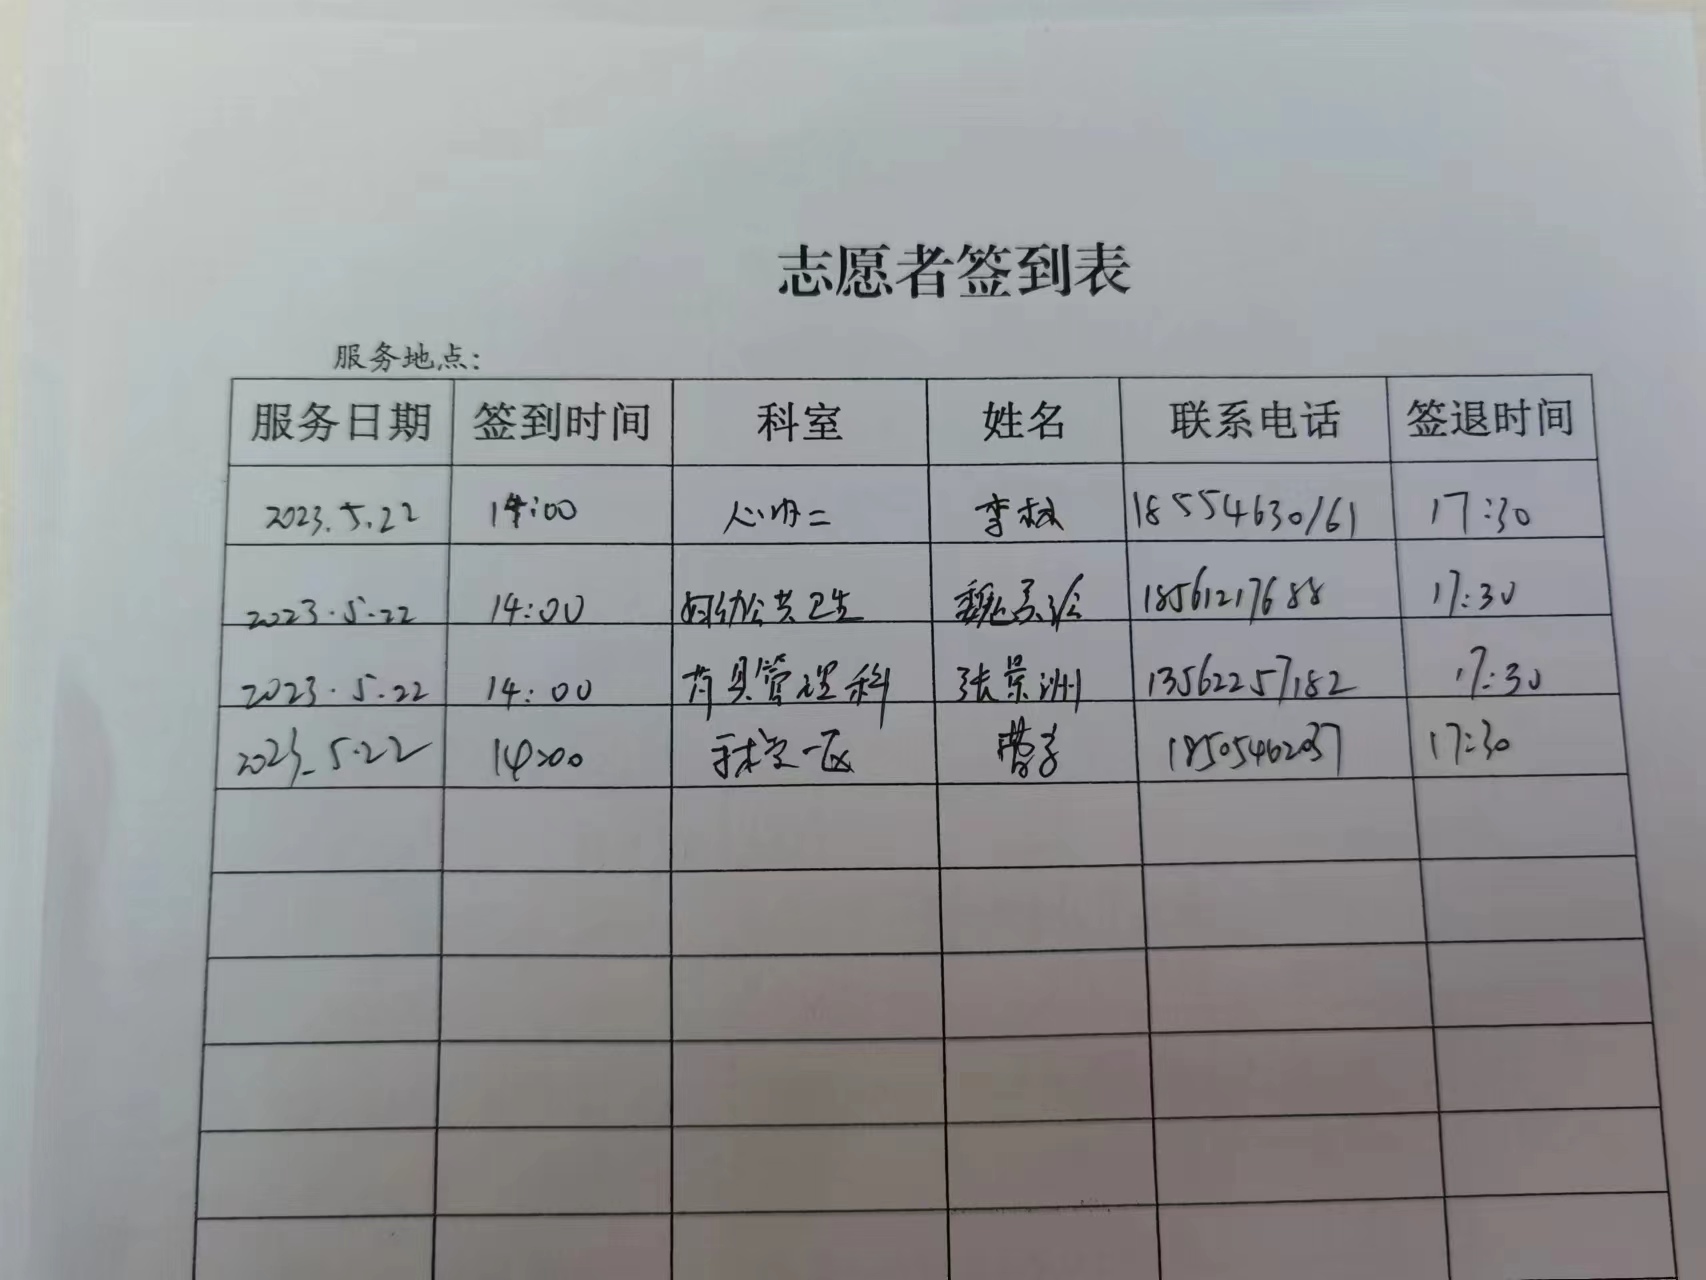 志愿者签到表
服务地点：
服务日期 签到时间 科室 姓名 联系电话 签退时间
2023.5.22 14:00 心内二 李 18554630161 17:30
2023.5.22 14:00 妇幼公共卫生 魏 18561217688 17:30
2023.5.22 14:00 药具管理科 张景洲 13562257182 17:30
2023.5.22 14:00 手术室一区 18505462037 17:30